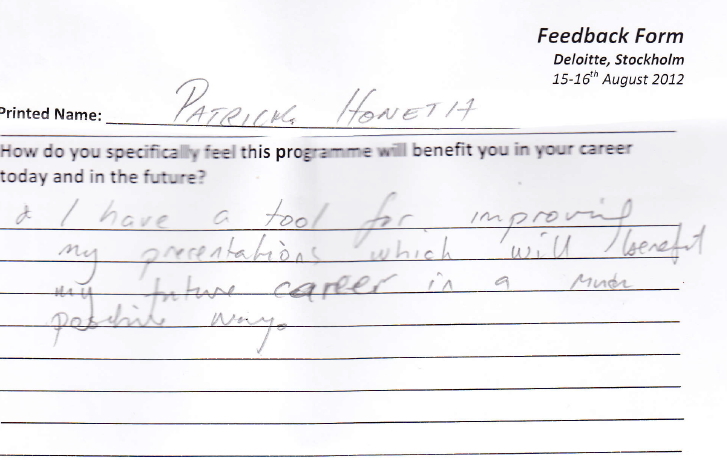 Feedback Form
Deloitte, Stockholm
15-16th August 2012
Printed Name: PATRICK
How do you specifically feel this programme will benefit you in your career
today and in the future?
I have a tool for improving
my presentations which will benefit
my future career in a much
positive way.